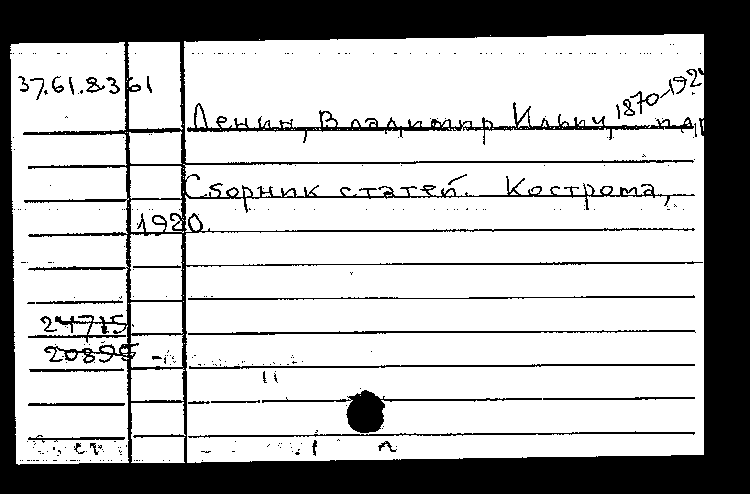 37.61.8361
Ленин, Владимир Ильич, 1870-192
Сборник статей. Кострома,
1920.
24715
20895